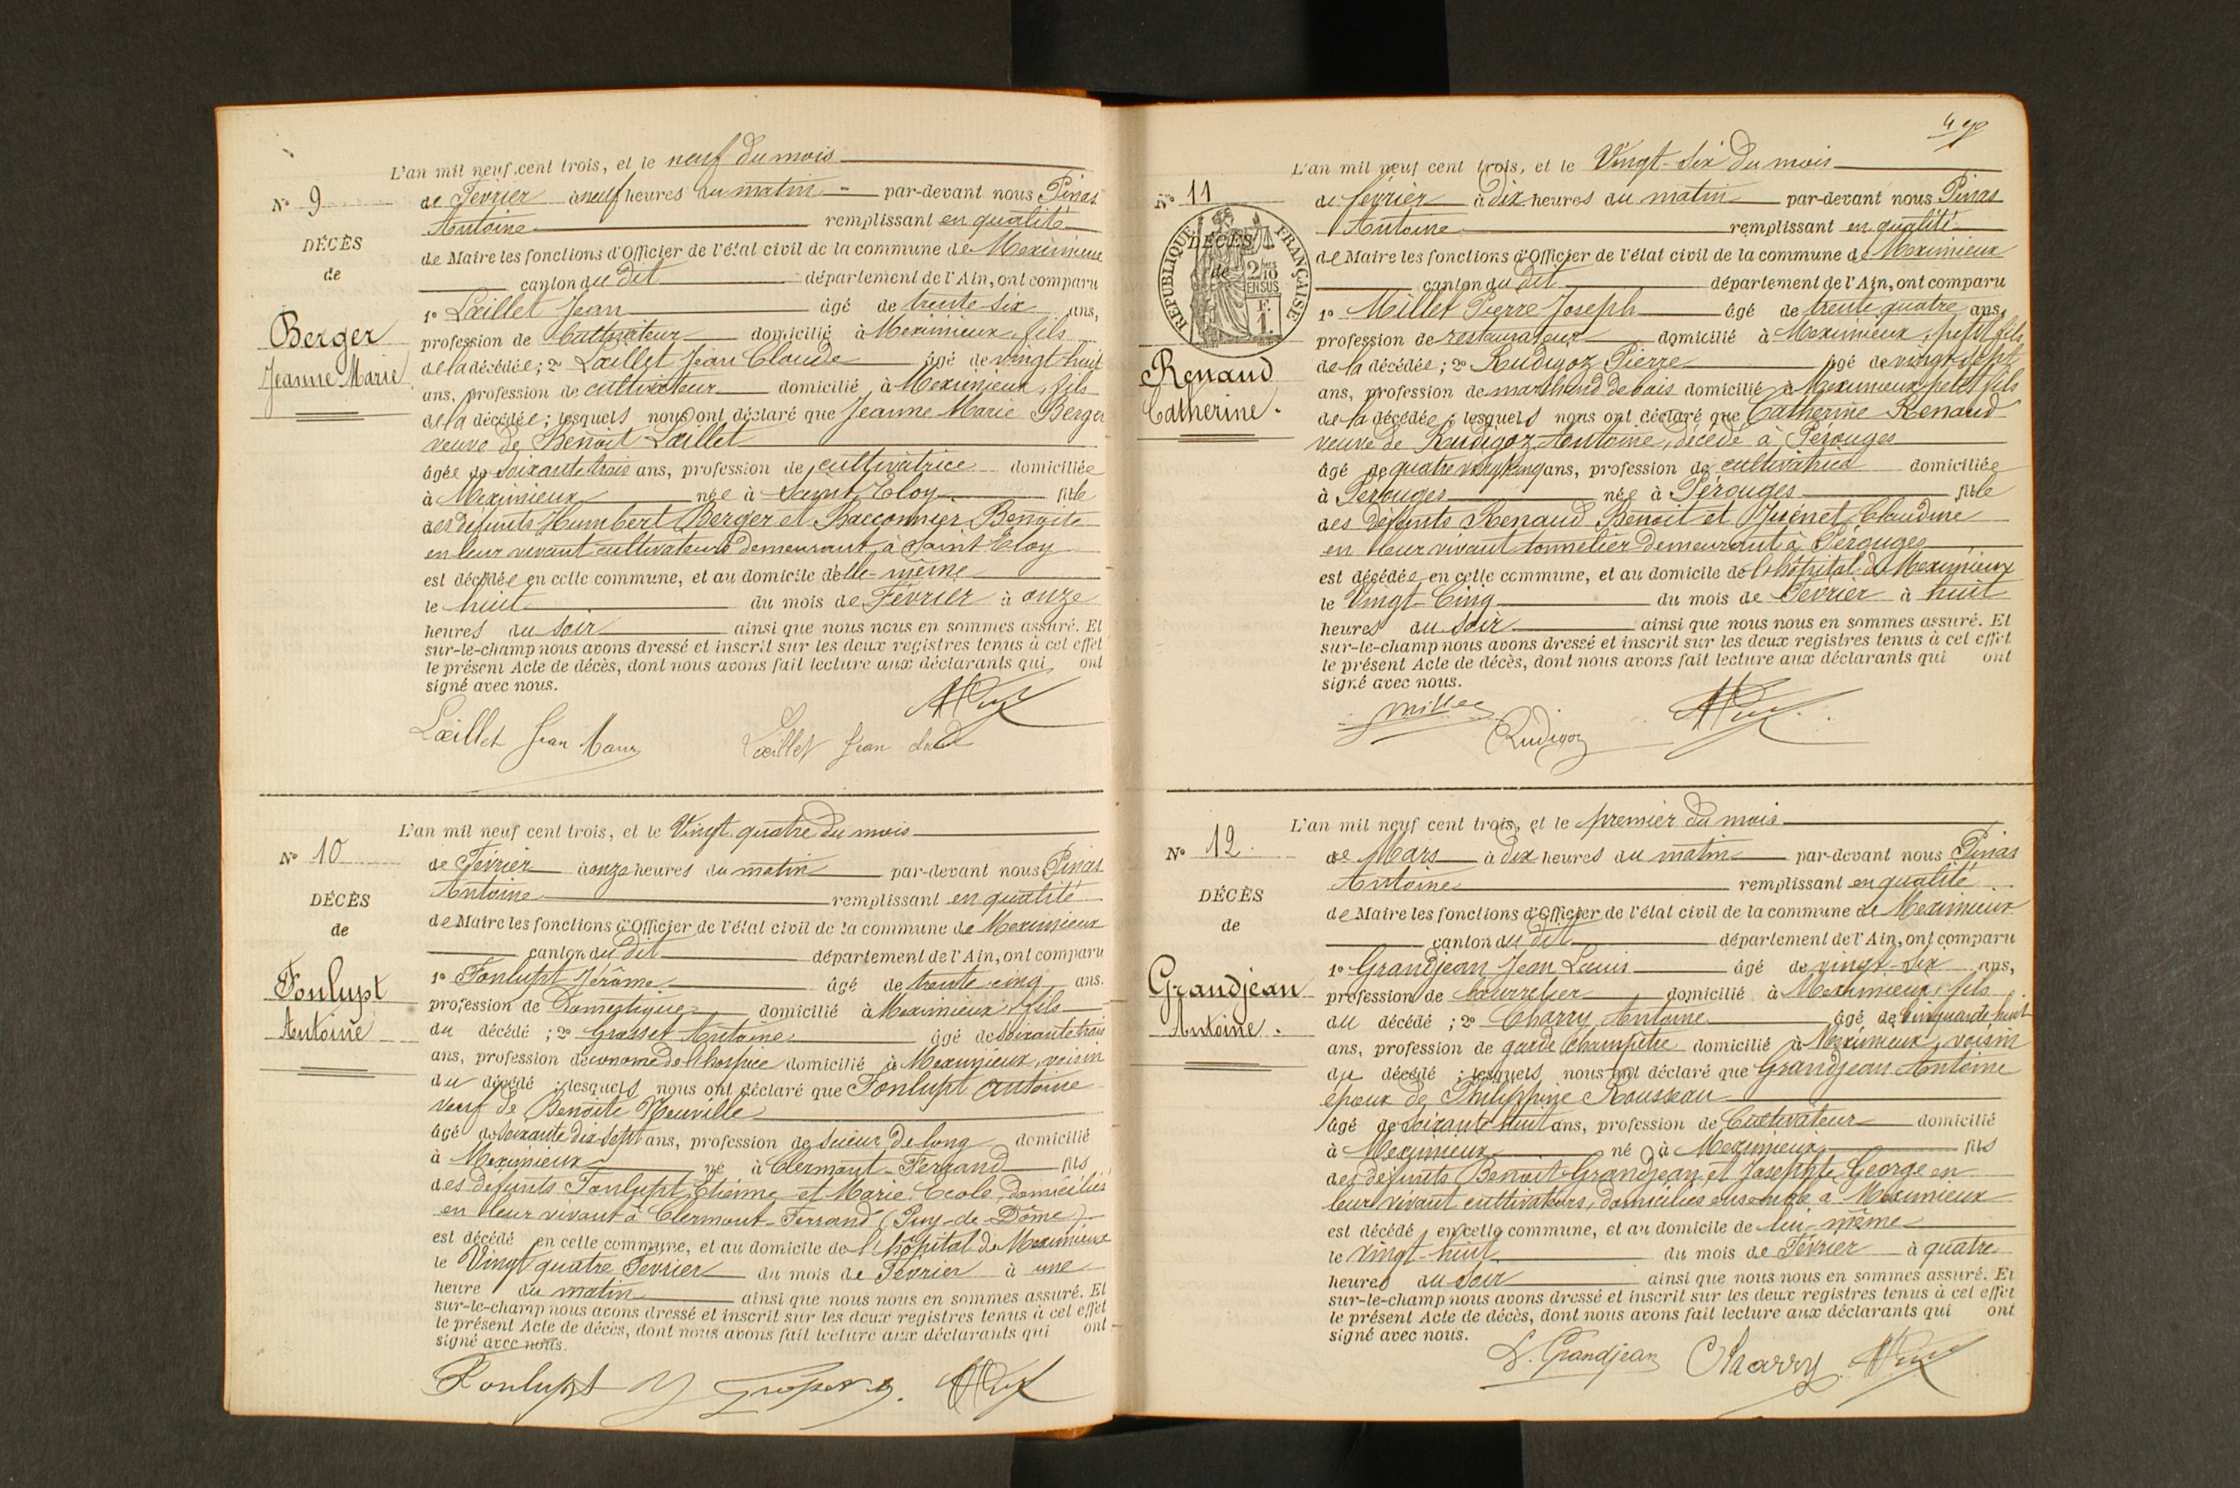 L'an mil neuf cent trois, et le neuf du mois
N° 9
de Fevrier à neuf heures du matin par-devant nous Pinas
Antoine remplissant en qualité
DÉCÈS
de Maire les fonctions d'Officier de l'état civil de la commune de Meximieux
de
canton du dit département de l'Ain, ont comparu
1° Lœillet Jean âgé de trente-six ans,
Berger
profession de Cultivateur domicilié à Meximieux, fils
Jeanne-Marie
de la décédée; 2° Lœillet Jean Claude âgé de vingt huit
ans, profession de cultivateur domicilié à Meximieux, fils
de la décédée; lesquels nous ont déclaré que Jeanne Marie Berger
veuve de Benoît Lœillet
âgée de soixante trois ans, profession de cultivatrice domiciliée
à Meximieux née à Saint Eloy fille
des defunts Humbert Berger et Bacconnier Benoîte
en leur vivant cultivateurs demeurant à Saint Eloy
est décédée en cette commune, et au domicile d'elle-même
le huit du mois de Février à onze
heures du soir ainsi que nous nous en sommes assuré. Et
sur-le-champ nous avons dressé et inscrit sur les deux registres tenus à cet effet
le présent Acte de décès, dont nous avons fait lecture aux déclarants qui ont
signé avec nous.
Lœillet Jean
Lœillet Jean
L'an mil neuf cent trois, et le Vingt quatre du mois
N° 10
de Février à onze heures du matin par-devant nous Pinas
Antoine remplissant en qualité
DÉCÈS
de Maire les fonctions d'Officier de l'état civil de la commune de Meximieux
de
canton du dit département de l'Ain, ont comparu
1° Fonlupt Jérôme âgé de trente cinq ans.
Fonlupt
profession de Domestique domicilié à Meximieux, fils
Antoine
du décédé; 2° Grosset Antoine âgé de soixante trois
ans, profession d'économe de l'hospice domicilié à Meximieux, voisin
du décédé; lesquels nous ont déclaré que Fonlupt Antoine
veuf de Benoîte Neuville
âgé de soixante dix-sept ans, profession de scieur de long domicilié
à Meximieux né à Clermont-Ferrand fils
des défunts Fonlupt Etienne et Marie Ecole, domiciliés
en leur vivant à Clermont-Ferrand (Puy-de-Dôme)
est décédé en cette commune, et au domicile de l'hôpital de Meximieux
le Vingt quatre Fevrier du mois de Février à une
heure du matin ainsi que nous nous en sommes assuré. Et
sur-le-champ nous avons dressé et inscrit sur les deux registres tenus à cet effet
le présent Acte de décès, dont nous avons fait lecture aux déclarants qui ont
signé avec nous.
Fonlupt
L'an mil neuf cent trois, et le Vingt-six du mois
N° 11
de février à dix heures du matin par-devant nous Pinas
Antoine remplissant en qualité
DÉCÈS
RÉPUBLIQUE FRANÇAISE
de Maire les fonctions d'Officier de l'état civil de la commune de Meximieux
de
canton du dit département de l'Ain, ont comparu
1° Millet Pierre Joseph âgé de trente quatre ans,
profession de restaurateur domicilié à Meximieux, petit fils
Renaud
de la décédée; 2° Rudigoz Pierre âgé de vingt-sept
Catherine.
ans, profession de marchand de bois domicilié à Meximieux petit fils
de la décédée; lesquels nous ont déclaré que Catherine Renaud
veuve de Rudigoz Antoine, décédé à Pérouges
âgé de quatre vingt cinq ans, profession de cultivatrice domiciliée
à Pérouges née à Pérouges fille
des défunts Renaud Benoit et Juénet Claudine
en leur vivant tonnelier demeurant à Pérouges
est décédée en cette commune, et au domicile de l'hôpital de Meximieux
le Vingt-Cinq du mois de Février à huit
heures du soir ainsi que nous nous en sommes assuré. Et
sur-le-champ nous avons dressé et inscrit sur les deux registres tenus à cet effet
le présent Acte de décès, dont nous avons fait lecture aux déclarants qui ont
signé avec nous.
Millet
Rudigoz
L'an mil neuf cent trois, et le premier du mois
N° 12
de Mars à dix heures du matin par-devant nous Pinas
Antoine remplissant en qualité
DÉCÈS
de Maire les fonctions d'Officier de l'état civil de la commune de Meximieux
de
canton du dit département de l'Ain, ont comparu
1° Grandjean Jean Louis âgé de vingt-six ans,
Grandjean
profession de bourrelier domicilié à Meximieux, fils
Antoine.
du décédé; 2° Charry Antoine âgé de cinquante huit
ans, profession de garde Champêtre domicilié à Meximieux, voisin
du décédé; lesquels nous ont déclaré que Grandjean Antoine
époux de Philippine Rousseau
âgé de soixante huit ans, profession de Cultivateur domicilié
à Meximieux né à Meximieux fils
des defunts Benoit Grandjean et Josephte George en
leur vivant cultivateurs, domiciliés ensemble à Meximieux
est décédé en cette commune, et au domicile de lui-même
le vingt-huit du mois de Février à quatre
heures du soir ainsi que nous nous en sommes assuré. Et
sur-le-champ nous avons dressé et inscrit sur les deux registres tenus à cet effet
le présent Acte de décès, dont nous avons fait lecture aux déclarants qui ont
signé avec nous.
L. Grandjean Charry